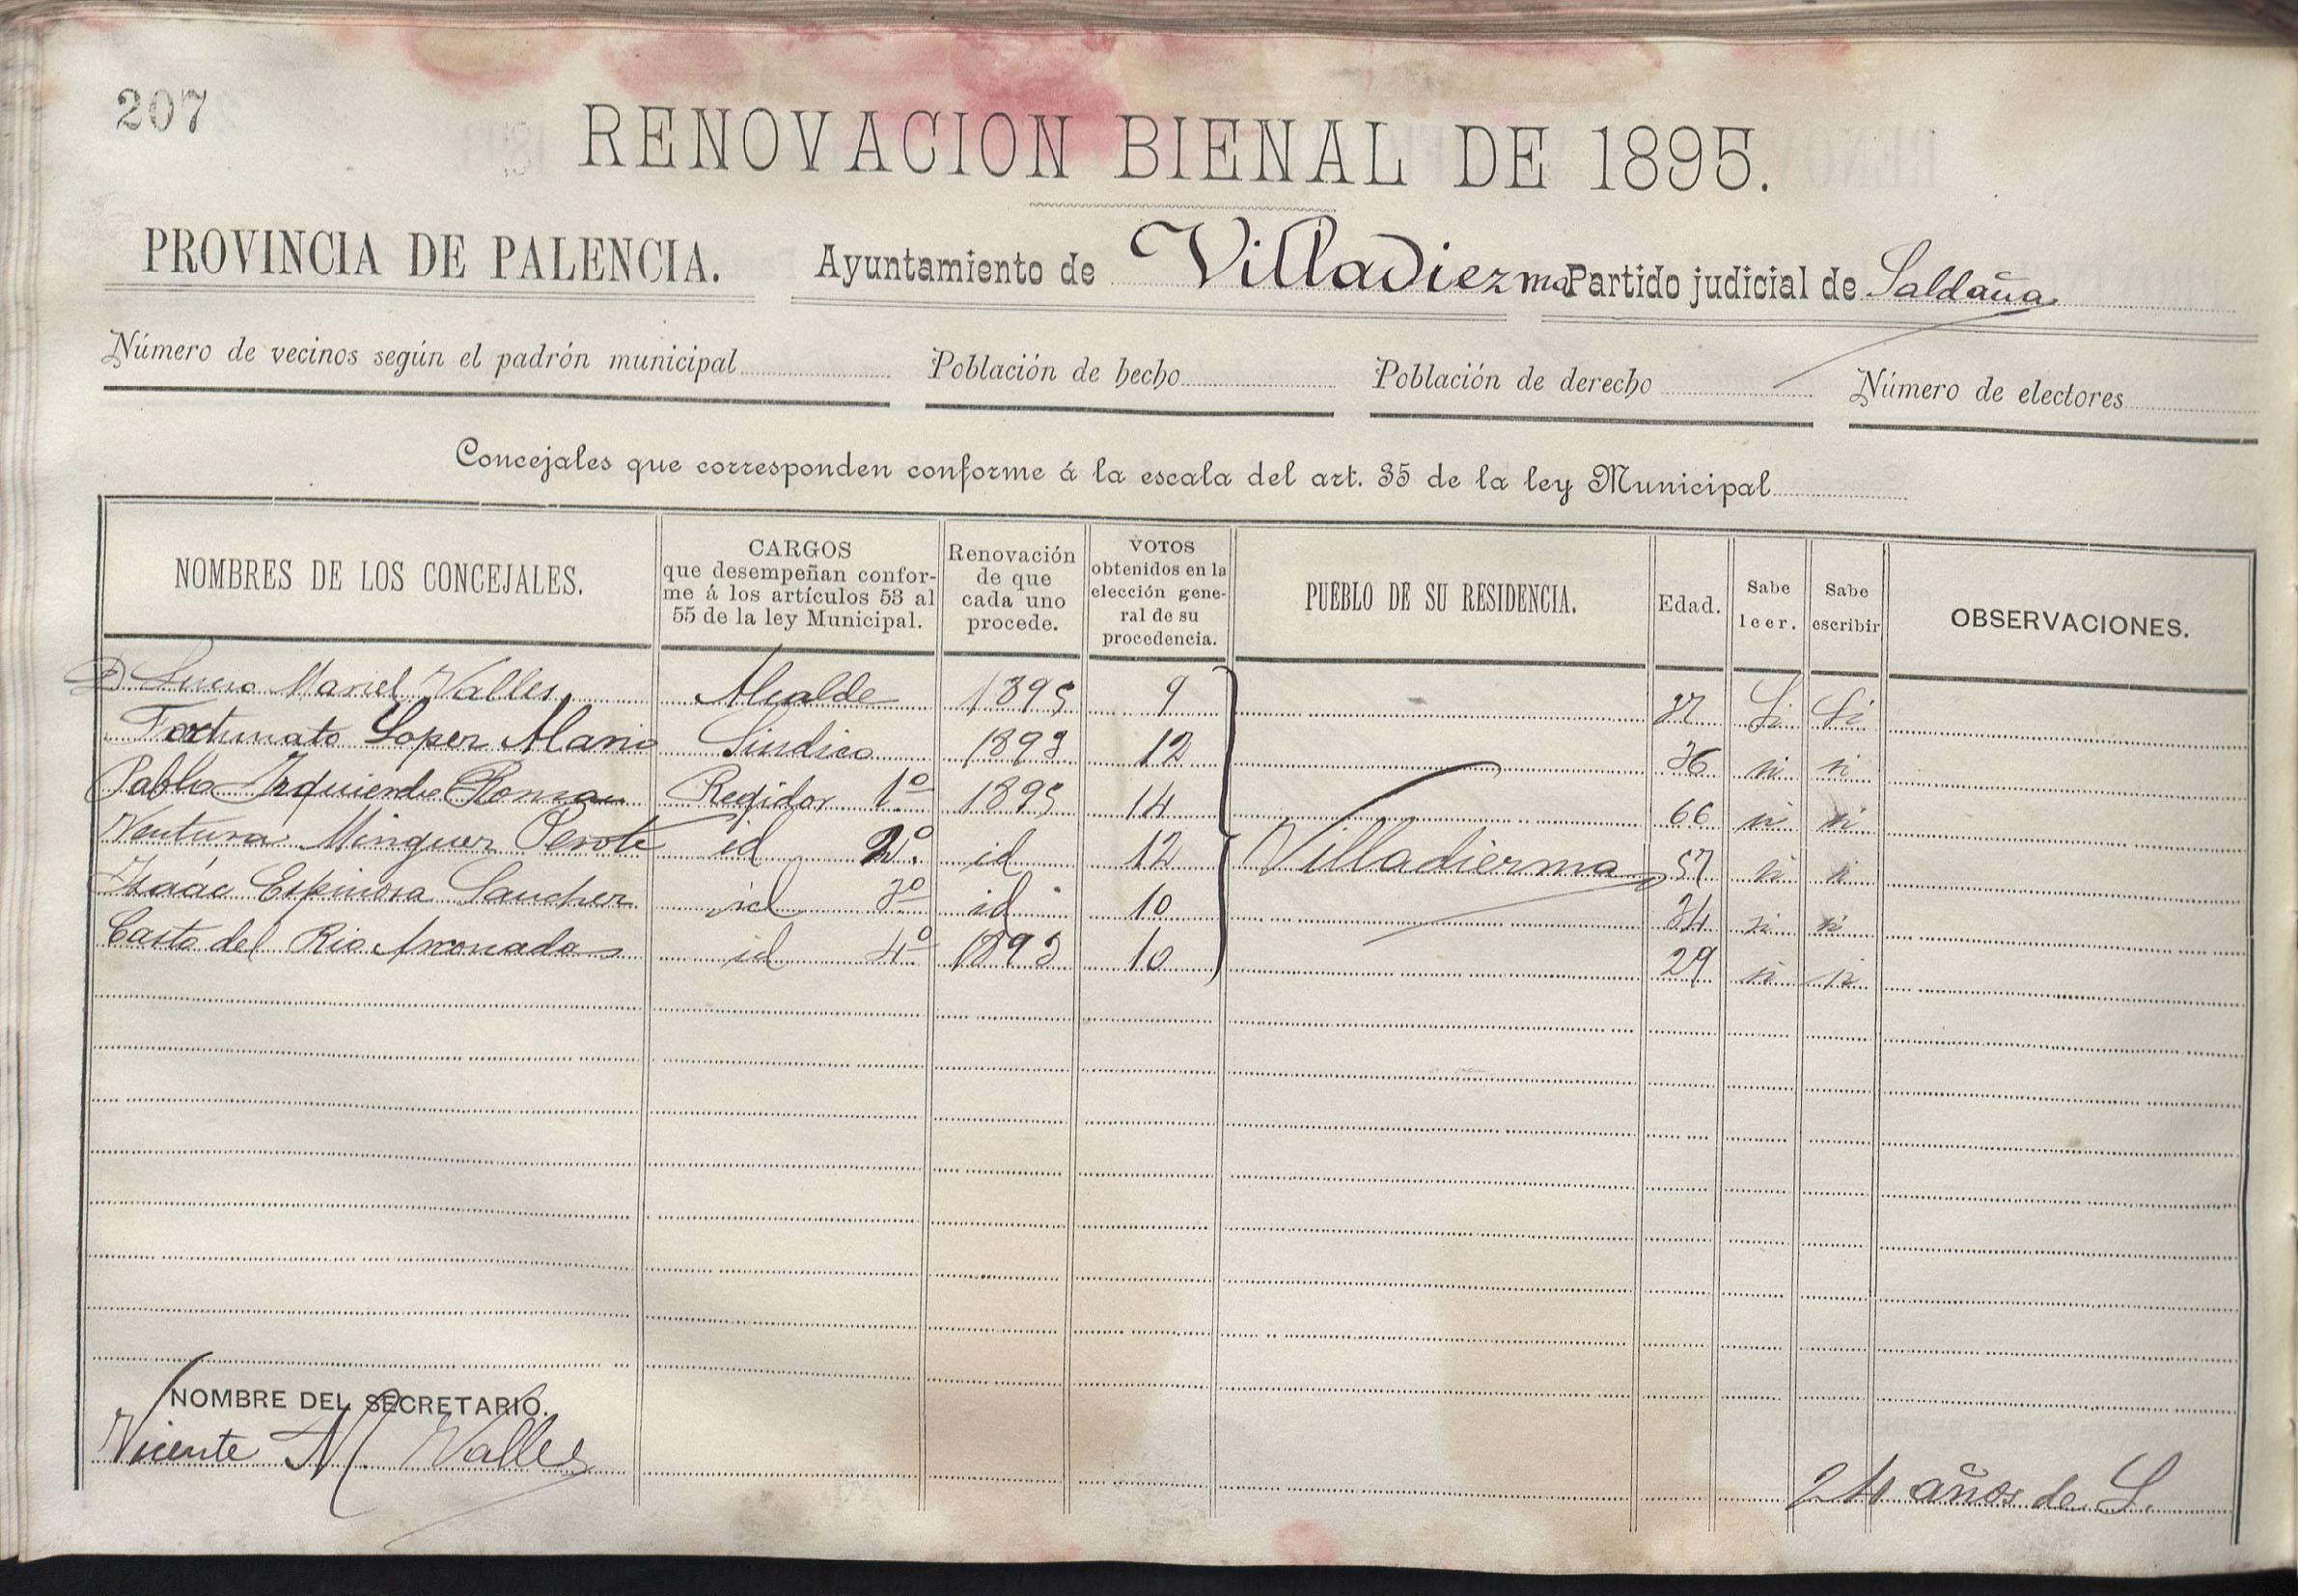 207
RENOVACION BIENAL DE 1895.
PROVINCIA DE PALENCIA. Ayuntamiento de Villadiezma Partido judicial de Saldaña
Número de vecinos según el padrón municipal Población de hecho Población de derecho Número de electores
Concejales que corresponden conforme á la escala del art. 35 de la ley Municipal
NOMBRES DE LOS CONCEJALES. CARGOS que desempeñan conforme á los artículos 53 al 55 de la ley Municipal. Renovación de que cada uno procede. VOTOS obtenidos en la elección general de su procedencia. PUEBLO DE SU RESIDENCIA. Edad. Sabe leer. Sabe escribir OBSERVACIONES.
D. Lucio Valles Alcalde 1895 9 Si Si
Fortunato Lopez Sindico 1893 12 36 si si
Pablo Izquierdo Roman Regidor 1º 1895 14 66 si si
Ventura Minguez Perote id 2º id 12 Villadiezma 57 si si
Isaác Espinosa Sanchez id 3º id 10 34 si si
Casto del Rio Arconada id 4º 1893 10 29 si si
NOMBRE DEL SECRETARIO.
Vicente M. Valles
24 años de S.